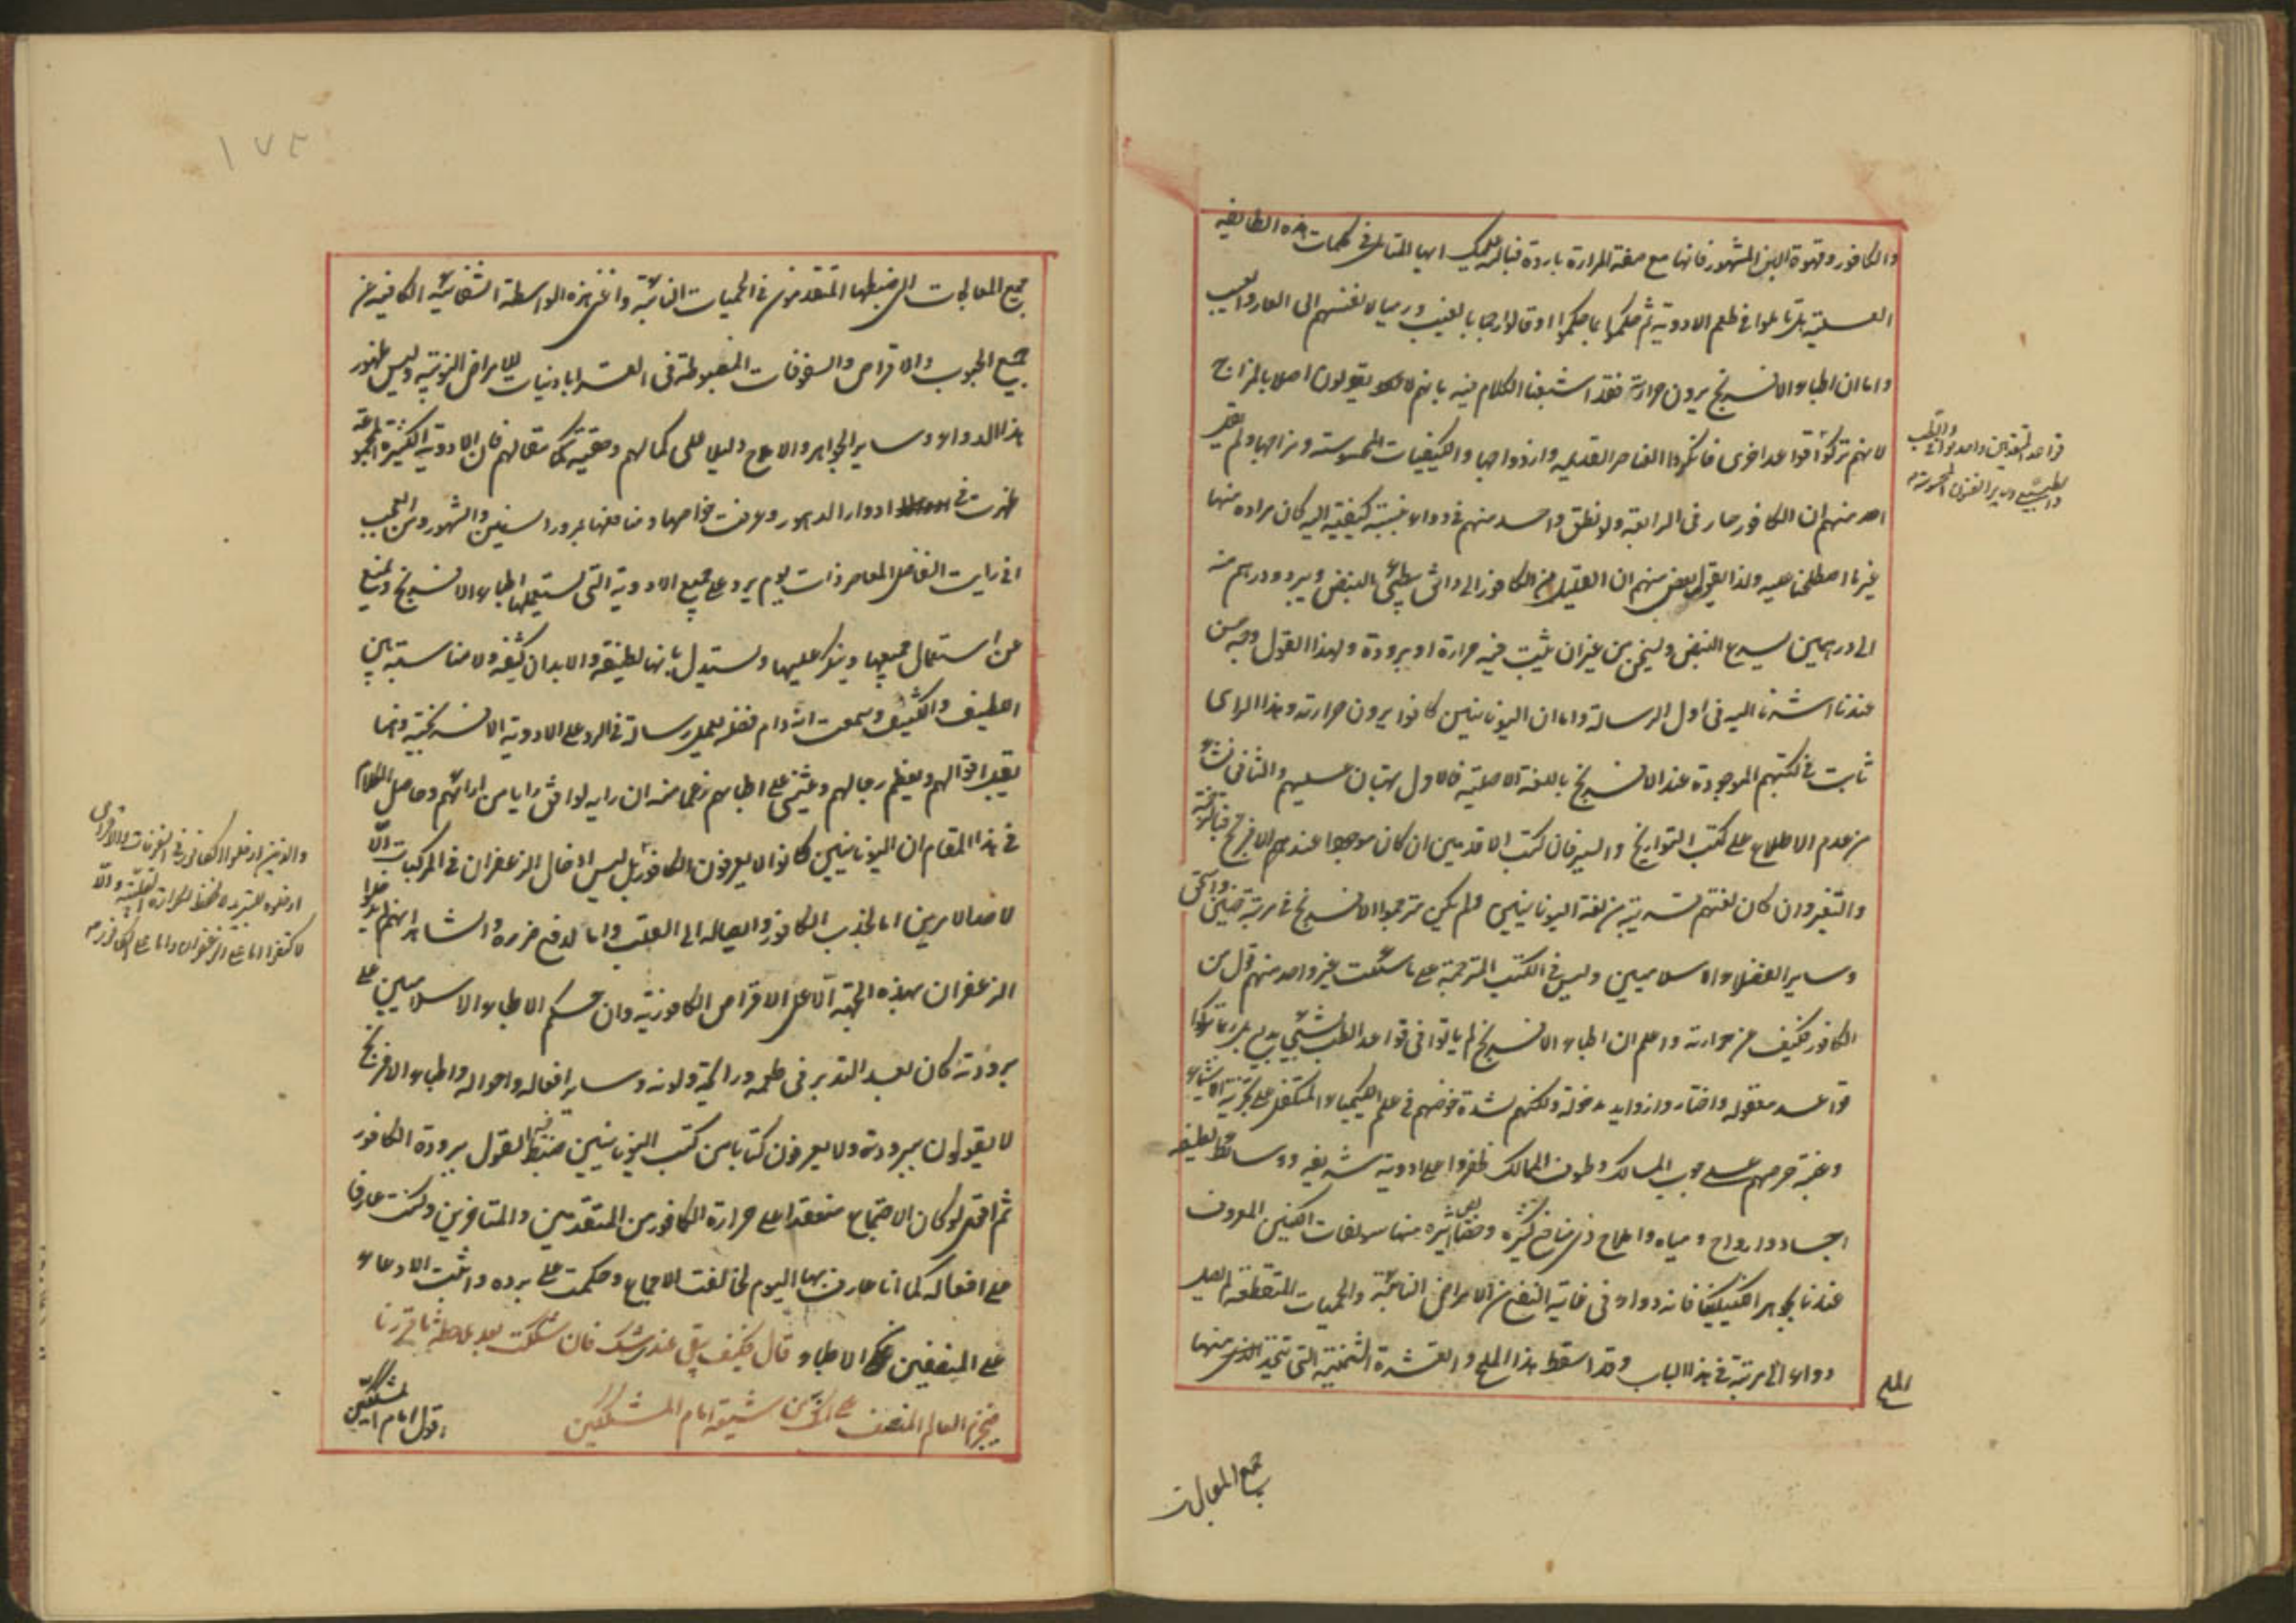 والكافور وقهوة البن المشهور فانها مع صفة المرارة باردة فبالله عليك ايها المتامل في كلمات هذه الطايفه
العسلية هل تاملوا في طعم الادوية ثم حكموا بما حكموا او قالوا رجما بالغيب ورميا لانفسهم الى العار والعيب
واما ان اطباء الافرنج يرون حرارته فقد اشبعنا الكلام فيه بانهم لا يقولون اصلا بالمزاج
لانهم تركوا قواعد اخرى فانكروا العناصر القديمه وازدواجها والكيفيات المحسوسة ومزاجها ولم يقر
احد منهم ان الكافور حار في الرابعة ولا نطق واحد منهم في دواء بنسبة كيفية اليه كان مراده منها
غير ما اصطلحنا عليه ولذا يقول بعض منهم ان القليل من الكافور الى دانق بطئ النبض ويبرد ودرهم منه
الى درهمين يسرع النبض ويسخن من غير ان يثبت فيه حرارة او برودة ولهذا القول وجه حسن
عندنا اشرنا اليه في اول الرسالة واما ان اليونانيين كانوا يرون حرارته وهذا الراى
ثابت في كتبهم الموجودة عند الافرنج باللغة الاصلية فالاول بهتان عليهم والثاني نشاء
من عدم الاطلاع على كتب التواريخ والسير فان كتب الاقدمين ان كان موجودا عند الافرنج
والتغير وان كان لغتهم قريبة من لغة اليونانيين ولم يكن مترجموا الافرنج في مرتبة حنين واسحق
وساير الفضلاء الاسلاميين وليس في الكتب المترجمة على ما سمعت غير واحد منهم قول من
الكافور فكيف عن حرارته واعلم ان اطباء الافرنج لم ياتوا في قواعد الطب بشئ بديع بل ربما تركوا
قواعد معقوله واختاروا زوايد مدخولة ولكنهم لشدة خوضهم في علم الكيمياء المتكفل على تجزية الاشياء
وغبة حرصهم على جوب المسالك وطوف الممالك ظفروا على ادوية شريفه ووسائط لطيفه
اجساد وارواح ومياه واملاح ذي منافع كثيرة وخصائص اثيرة منها سولفات الكينين المعروف
عندنا بجوهر الكينكينا فانه دواء في غاية النفع من الامراض النائبة والحميات المتقطعة لم يصل
دواء الى مرتبة في هذا الباب وقد اسقط هذا الملح والقشرة الخشبية التي يتخذ الملح منها
الملح
جميع المعالجات
قواعد المتقدمين واصول الطب
والطبيعي وساير الفنون المحسوسة م
١٧٤
جميع المعالجات التي ضبطها المتقدمون في الحميات النائبة واغنى هذه الواسطة الشفائية الكافيه عن
جميع الحبوب والاقراص والسفوفات المضبوطة في القراباذينات للامراض النوبتيه وليس ظهور
هذا الدواء وساير الجواهر والاملاح دليلا على كمالهم وحقية كل مقالهم فان الادوية الكثيرة النافعة
ظهرت في ادوار الدهور وعرفت خواصها ومنافعها بمرور السنين والشهور ومن العجب
اني رايت الفاضل المعاصر ذات يوم يرد على جميع الادوية التي يستعملها اطباء الافرنج ويمنع
عن استعمال جميعها وينكر عليها ويستدل بانها لطيفة والابدان كثيفه ولا مناسبة بين
اللطيف والكثيف وسمعت انه دام فضله يعمل رسالة في الرد على الادوية الافرنجية وانما
يقبل اقوالهم ويعظم رجالهم ويثني على اطبائهم زعما منه ان رايه يوافق رايا من ارائهم وحاصل الكلام
في هذا المقام ان اليونانيين كانوا لا يعرفون الكافور بل ليس ادخال الزعفران في المركبات الا
لاحد الامرين اما لجذب الكافور وايصاله الى القلب واما لدفع ضرره والشاهد انهم لم يدخلوا
الزعفران بهذه الجهة الا على الاقراص الكافورية وان حكم الاطباء الاسلاميين على
برودته كان بعد التدبر في طعمه ورائحته ولونه وساير افعاله واحواله واطباء الافرنج
لا يقولون ببرودته ولا يعرفون كتابا من كتب اليونانيين ضبط فيه القول ببرودة الكافور
ثم اقول لو كان الاجماع منعقدا على حرارة الكافور من المتقدمين والمتاخرين وكنت عارفا
على افعاله كما انا عارف بها اليوم لخالفت الاجماع وحكمت على برده واثبت الادعاء
على المنصفين من الاطباء قال فكيف يبقى عندى شك فان شككت بعد ملاحظة ما قررنا
فيخرج العالم المنصف على كونه من شيعة امام المشككين
اقول امام المشككين
والذين ادخلوا الكافور في السفوفات والاقراص
ادخلوه للتبريد لا لحفظ الحرارة القلبية والا
لاكتفوا اما على الزعفران واما على الكافور م